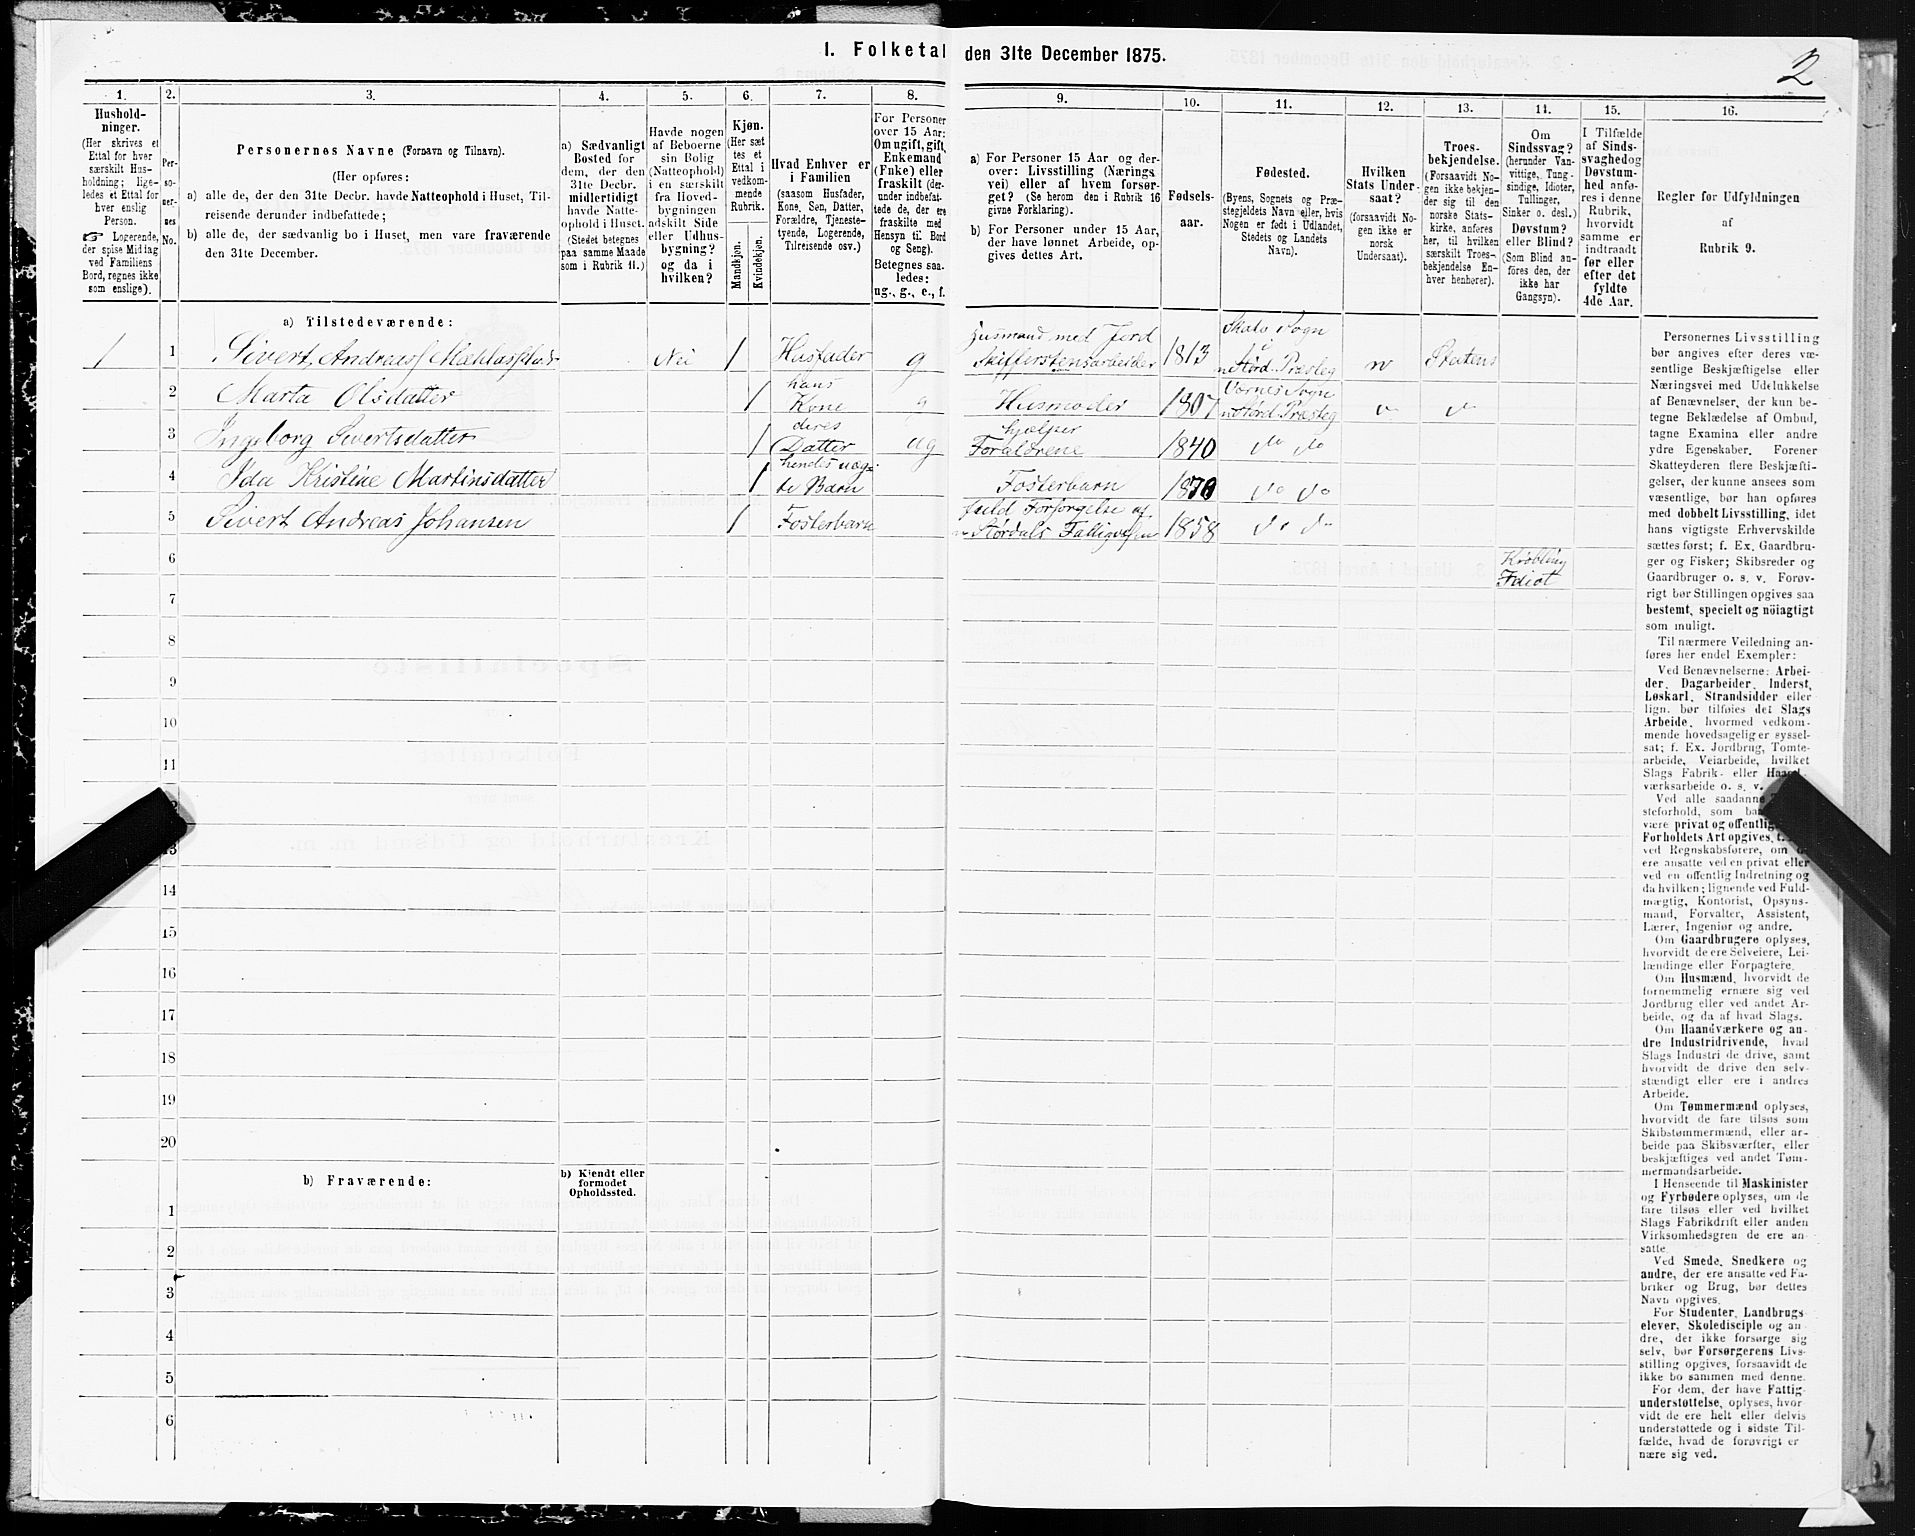 I. Folketal den 31te December 1875.
2
1.
Hushold-
ninger.
(Her skrives et
Ettal for hver
særskilt Hus-
holdning; lige-
ledes et Ettal for
hver enslig
Person.
☞ Logerende,
der spise Middag
ved Familiens
Bord, regnes ikke
som enslige).
2.
Per-
so-
ner-
nes
No.
3.
Personernes Navne (Fornavn og Tilnavn).
(Her opføres:
a) alle de, der den 31te Decbr. havde Natteophold i Huset, Til-
reisende derunder indbefattede;
b) alle de, der sædvanlig bo i Huset, men vare fraværende
den 31te December.
4.
a) Sædvanligt
Bosted for
dem, der den
31te Decbr.
midlertidigt
havde Natte-
ophold i Huset.
(Stedet betegnes
paa samme Maade
som i Rubrik 11.)
5.
Havde nogen
af Beboerne
sin Bolig
(Natteophold)
i en særskilt
fra Hoved-
bygningen
adskilt Side
eller Udhus-
bygning?
og da i
hvilken?
6.
Kjøn.
(Her sæt
tes et
Ettal i
vedkom-
mende
Rubrik.
Mandkjøn.
Kvindekjøn.
7.
Hvad Enhver er
i Familien
(saasom Husfader,
Kone, Søn, Datter,
Forældre, Tjeneste-
tyende, Logerende,
Tilreisende osv.)
8.
For Personer
over 15 Aar:
Om ugift, gift,
Enkemand
(Enke) eller
fraskilt (der-
under indbefat-
tede de, der ere
fraskilte med
Hensyn til Bord
og Seng).
Betegnes saa-
ledes:
ug., g., e., f.
9.
a) For Personer 15 Aar og der-
over: Livsstilling (Nærings
vei) eller af hvem forsør-
get? (Se herom den i Rubrik 16
givne Forklaring).
b) For Personer under 15 Aar,
der have lønnet Arbeide, op-
gives dettes Art.
10.
Fødsels-
aar.
11.
Fødested.
(Byens, Sognets og Præ-
stegjeldets Navn eller, hvis
Nogen er født i Udlandet,
Stedets og Landets
Navn).
12.
Hvilken
Stats Under-
saat?
(forsaavidt No-
gen ikke er
norsk
Undersaat).
13.
Troes-
bekjendelse.
(Forsaavidt No-
gen ikke bekjen-
der sig til den
norske Stats-
kirke, anføres
her, til hvilken
særskilt Troes-
bekjendelse En-
hver henhører).
14.
Om
Sindssvag?
(herunder Van-
vittige, Tung-
sindige, Idioter,
Tullinger,
Sinker o. desl.)
Døvstum?
eller Blind?
(Som Blind an-
føres den, der
ikke har
Gangsyn).
15.
I Tilfælde
af Sinds-
svaghed og
Døvstum-
hed anfø-
res i denne
Rubrik,
hvorvidt
samme er
indtraadt
før eller
efter det
fyldte
4de Aar.
16.
Regler for Udfyldningen
af
Rubrik 9.
a) Tilstedeværende:
1 1 Sivert Andreas Nei 1 Husfader g Husmand med Jord Skifferstensarbeider 1813 Skals Sogn n Størd. Præsteg n Statens
2 Marta Olsdatter 1 hans Kone g Husmoder 1807 Værnes Sogn n Størd Præsteg
3 Ingeborg Sivertsdatter 1 deres Datter ug hjelper Forældrene 1840 do do
4 Ida Kristine Martinsdatter 1 hendes uægte Barn Fosterbarn 1870 do do
5 Sivert Andreas Johansen 1 Fosterbarn fuld Forsørgelse af n Størdals Fattigvesen 1858 do do
6 Krøbling
Idiot
7
8
9
10
11
13
14
15
16
17
18
19
20
b) Fraværende:
b) Kjendt eller
formodet
Opholdssted.
1
2
3
4
5
6
Personernes Livsstilling
bør angives efter deres væ-
sentlige Beskjæftigelse eller
Næringsvei med Udelukkelse
af Benævnelser, der kun be-
tegne Beklædelse af Ombud,
tagne Examina eller andre
ydre Egenskaber. Forener
Skatteyderen flere Beskjæfti-
gelser, der kunne ansees som
væsentlige, bør han opføres
med dobbelt Livsstilling, idet
hans vigtigste Erhvervskilde
sættes først; f. Ex. Gaardbru-
ger og Fisker; Skibsreder og
Gaardbruger o. s. v. Forøv-
rigt bør Stillingen opgives saa
bestemt, specielt og nöiagtigt
som muligt.
Til nærmere Veiledning an-
føres her endel Exempler:
Ved Benævnelserne: Arbei-
der, Dagarbeider, Inderst,
Løskarl, Strandsidder eller
lign. bør tilføies det Slags
Arbeide, hvormed vedkom-
mende hovedsagelig er syssel-
sat; f. Ex. Jordbrug, Tomte-
arbeide, Veiarbeide, hvilket
Slags Fabrik- eller Haand-
værksarbeide o. s. v.
Ved alle saadanne
steforhold, som
være privat og offentlig
Forholdets Art opgives,
ved Regnskabsførere, om
ere ansatte ved en privat eller
ved en offentlig Indretning og
da hvilken; lignende ved Fuld-
mægtig, Kontorist, Opsyns-
mand, Forvalter, Assistent,
Lærer, Ingeniør og andre.
Om Gaardbrugere oplyses,
hvorvidt de ere Selveiere, Lei-
lændinge eller Forpagtere.
Om Husmænd, hvorvidt de
fornemmelig ernære sig ved
Jordbrug eller ved andet Ar-
beide, og da af hvad Slags.
Om Haandværkere og an-
dre Industridrivende, hvad
Slags Industri de drive, samt
hvorvidt de drive den selv-
stændigt eller ere i andres
Arbeide.
Om Tømmermænd oplyses,
hvorvidt de fare tilsøs som
Skibstømmermænd, eller ar-
beide paa Skibsværfter, eller
beskjæftiges ved andet Tøm-
mermandsarbeide.
I Henseende til Maskinister
og Fyrbødere oplyses, om de
fare tilsøs eller ved hvilket
Slags Fabrikdrift eller anden
Virksomhedsgren de ere an-
satte.
Ved Smede, Snedkere og
andre, der ere ansatte ved Fa-
briker og Brug, bør dettes
Navn opgives.
For Studenter, Landbrugs
elever, Skoledisciple og an
dre, der ikke forsørge sig
selv, bør Forsørgerens Livs-
stilling opgives, forsaavidt de
ikke bo sammen med denne.
For dem, der have Fattig-
understøttelse, oplyses, hvor
vidt de ere helt eller delvis
understøttede og i sidste Til-
fælde, hvad de forøvrigt er
nære sig ved.